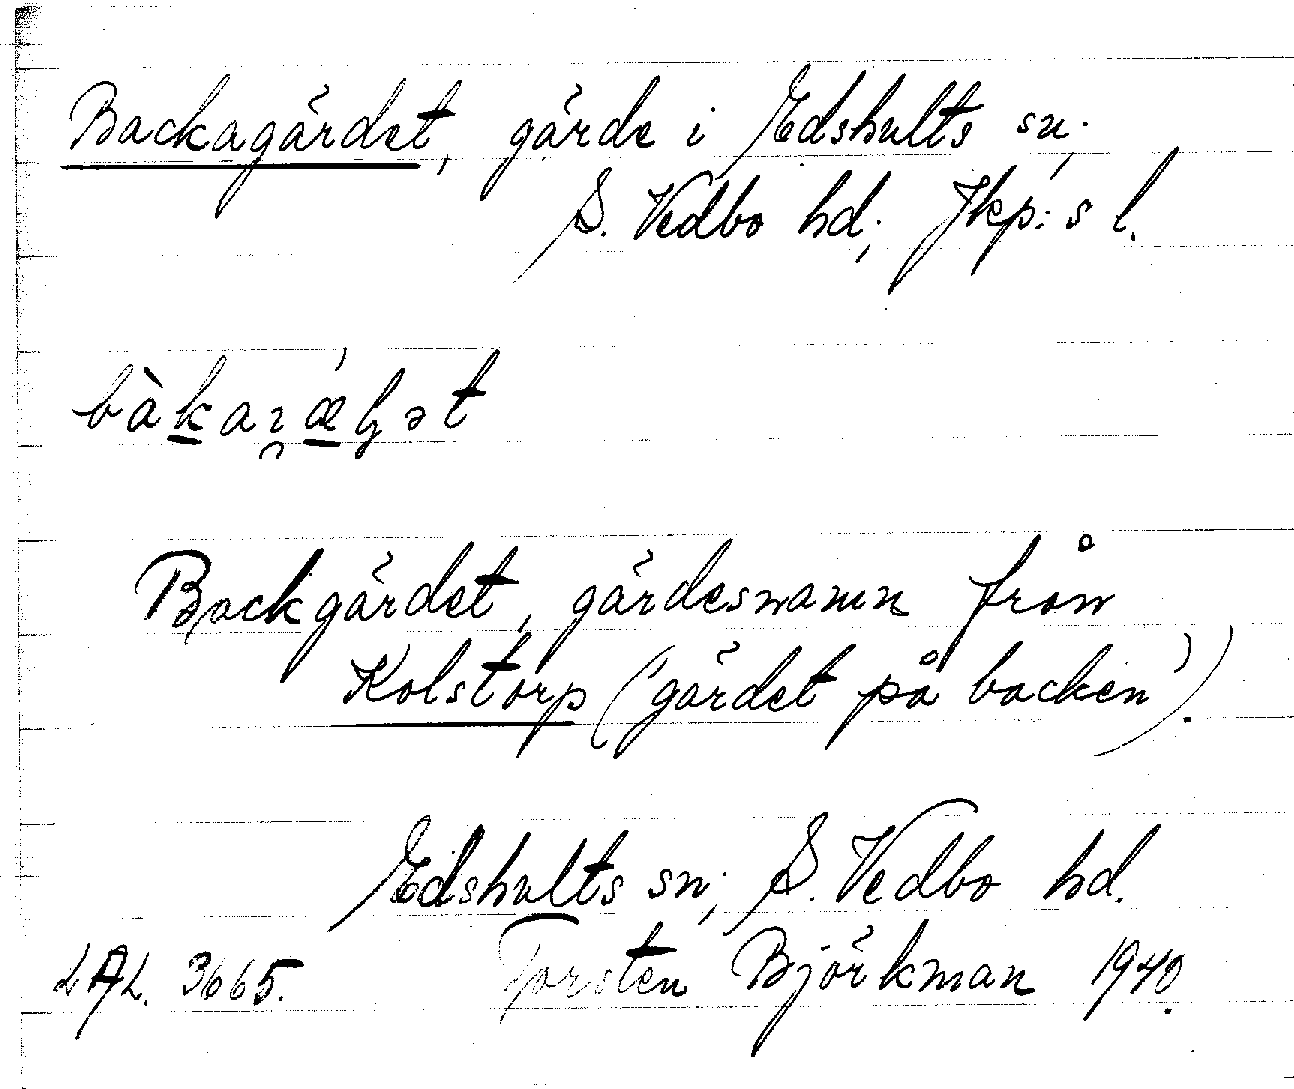 Backagärdet, gärde i Edshults sn;
S. Vedbo hd; Jkp:s l.
Backgärdet, gärdesnamn från
Kolstorp ('gärdet på backen').
Edshults sn; S. Vedbo hd.
LAL. 3665. Torsten Björkman 1940.